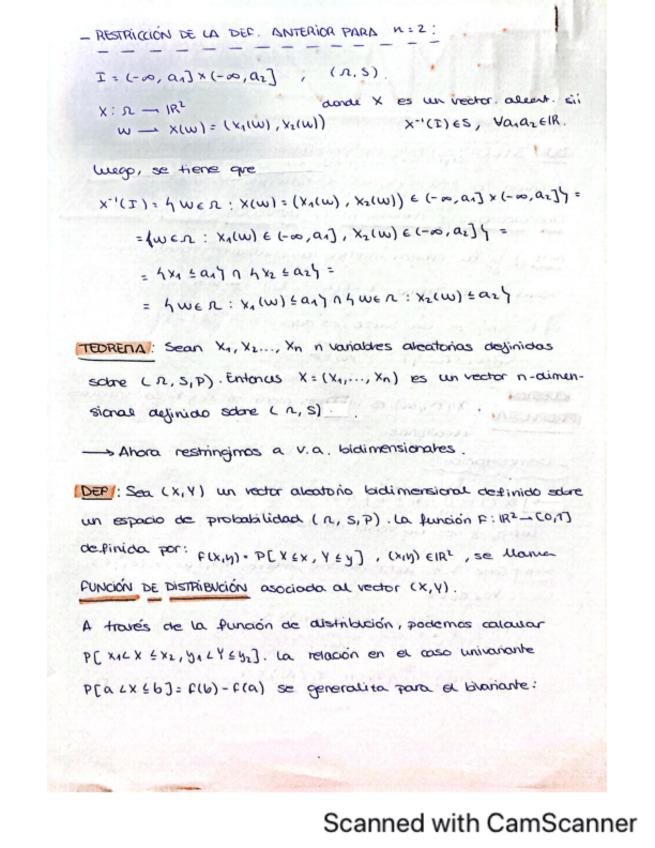 - RESTRICCIÓN DE LA DEF. ANTERIOR PARA n=2:
I = (-∞, a₁] × (-∞, a₂] , (Ω, S).
X: Ω → IR² donde X es un vector. aleat. sii
w → X(w) = (X₁(w), X₂(w)) X⁻¹(I) ∈ S, ∀a₁a₂ ∈ IR.
Luego, se tiene que
X⁻¹(I) = {w ∈ Ω : X(w) = (X₁(w), X₂(w)) ∈ (-∞, a₁] × (-∞, a₂]} =
= {w ∈ Ω : X₁(w) ∈ (-∞, a₁], X₂(w) ∈ (-∞, a₂]} =
= {X₁ ≤ a₁} ∩ {X₂ ≤ a₂} =
= {w ∈ Ω : X₁(w) ≤ a₁} ∩ {w ∈ Ω : X₂(w) ≤ a₂}
TEOREMA: Sean X₁, X₂..., Xn n variables aleatorias definidas
sobre (Ω, S, P). Entonces X = (X₁, ..., Xn) es un vector n-dimen-
sional definido sobre (Ω, S).
→ Ahora restringimos a v.a. bidimensionales.
DEF: Sea (X, Y) un vector aleatorio bidimensional definido sobre
un espacio de probabilidad (Ω, S, P). La función F: IR² → [0,1]
definida por: F(x,y) = P[X ≤ x, Y ≤ y], (x,y) ∈ IR², se llama
FUNCIÓN DE DISTRIBUCIÓN asociada al vector (X, Y).
A través de la función de distribución, podemos calcular
P[x₁ < X ≤ x₂, y₁ < Y ≤ y₂]. La relación en el caso univariante
P[a < X ≤ b] = F(b) - F(a) se generaliza para el bivariante:
Scanned with CamScanner